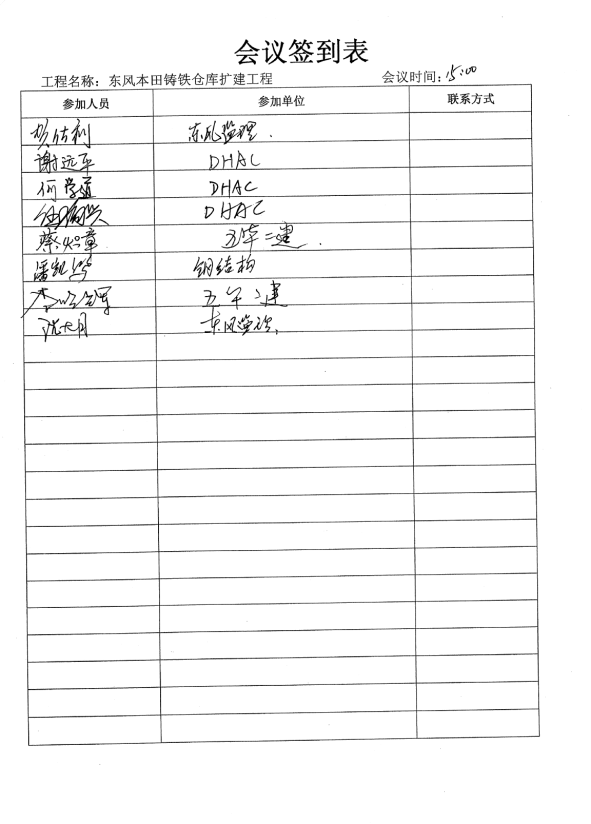 会议签到表
工程名称：东风本田铸铁仓库扩建工程 会议时间：15:00
参加人员 参加单位 联系方式
东风监理.
谢远平 DHAC
何学通 DHAC
DHAC
蔡炽章 五华二建.
潘 钢结构
五华二建
沈七月 东风监理.